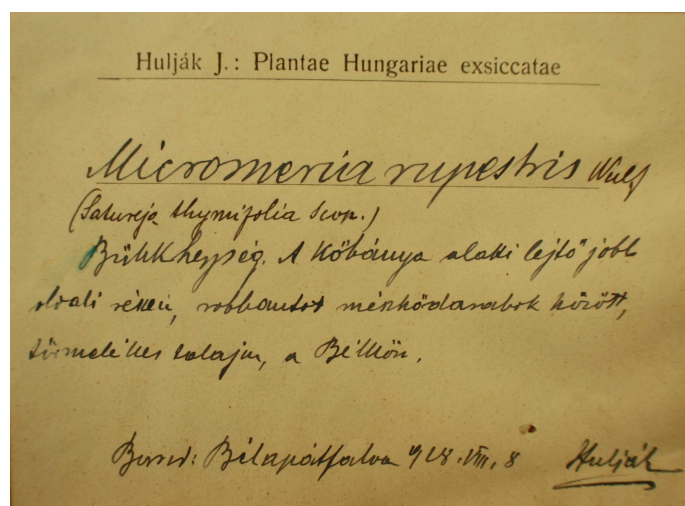 Hulják J.: Plantae Hungariae exsiccatae
Micromeria rupestris Wulf
(Satureja thymifolia Scop.)
Bükkhegység. A Kőbánya alatti lejtő jobb
oldali részén, robbantot mészkődarabok között,
törmelékes talajon, a Bélkőn.
Borsod: Bélapátfalva 1928. VIII. 8 Hulják